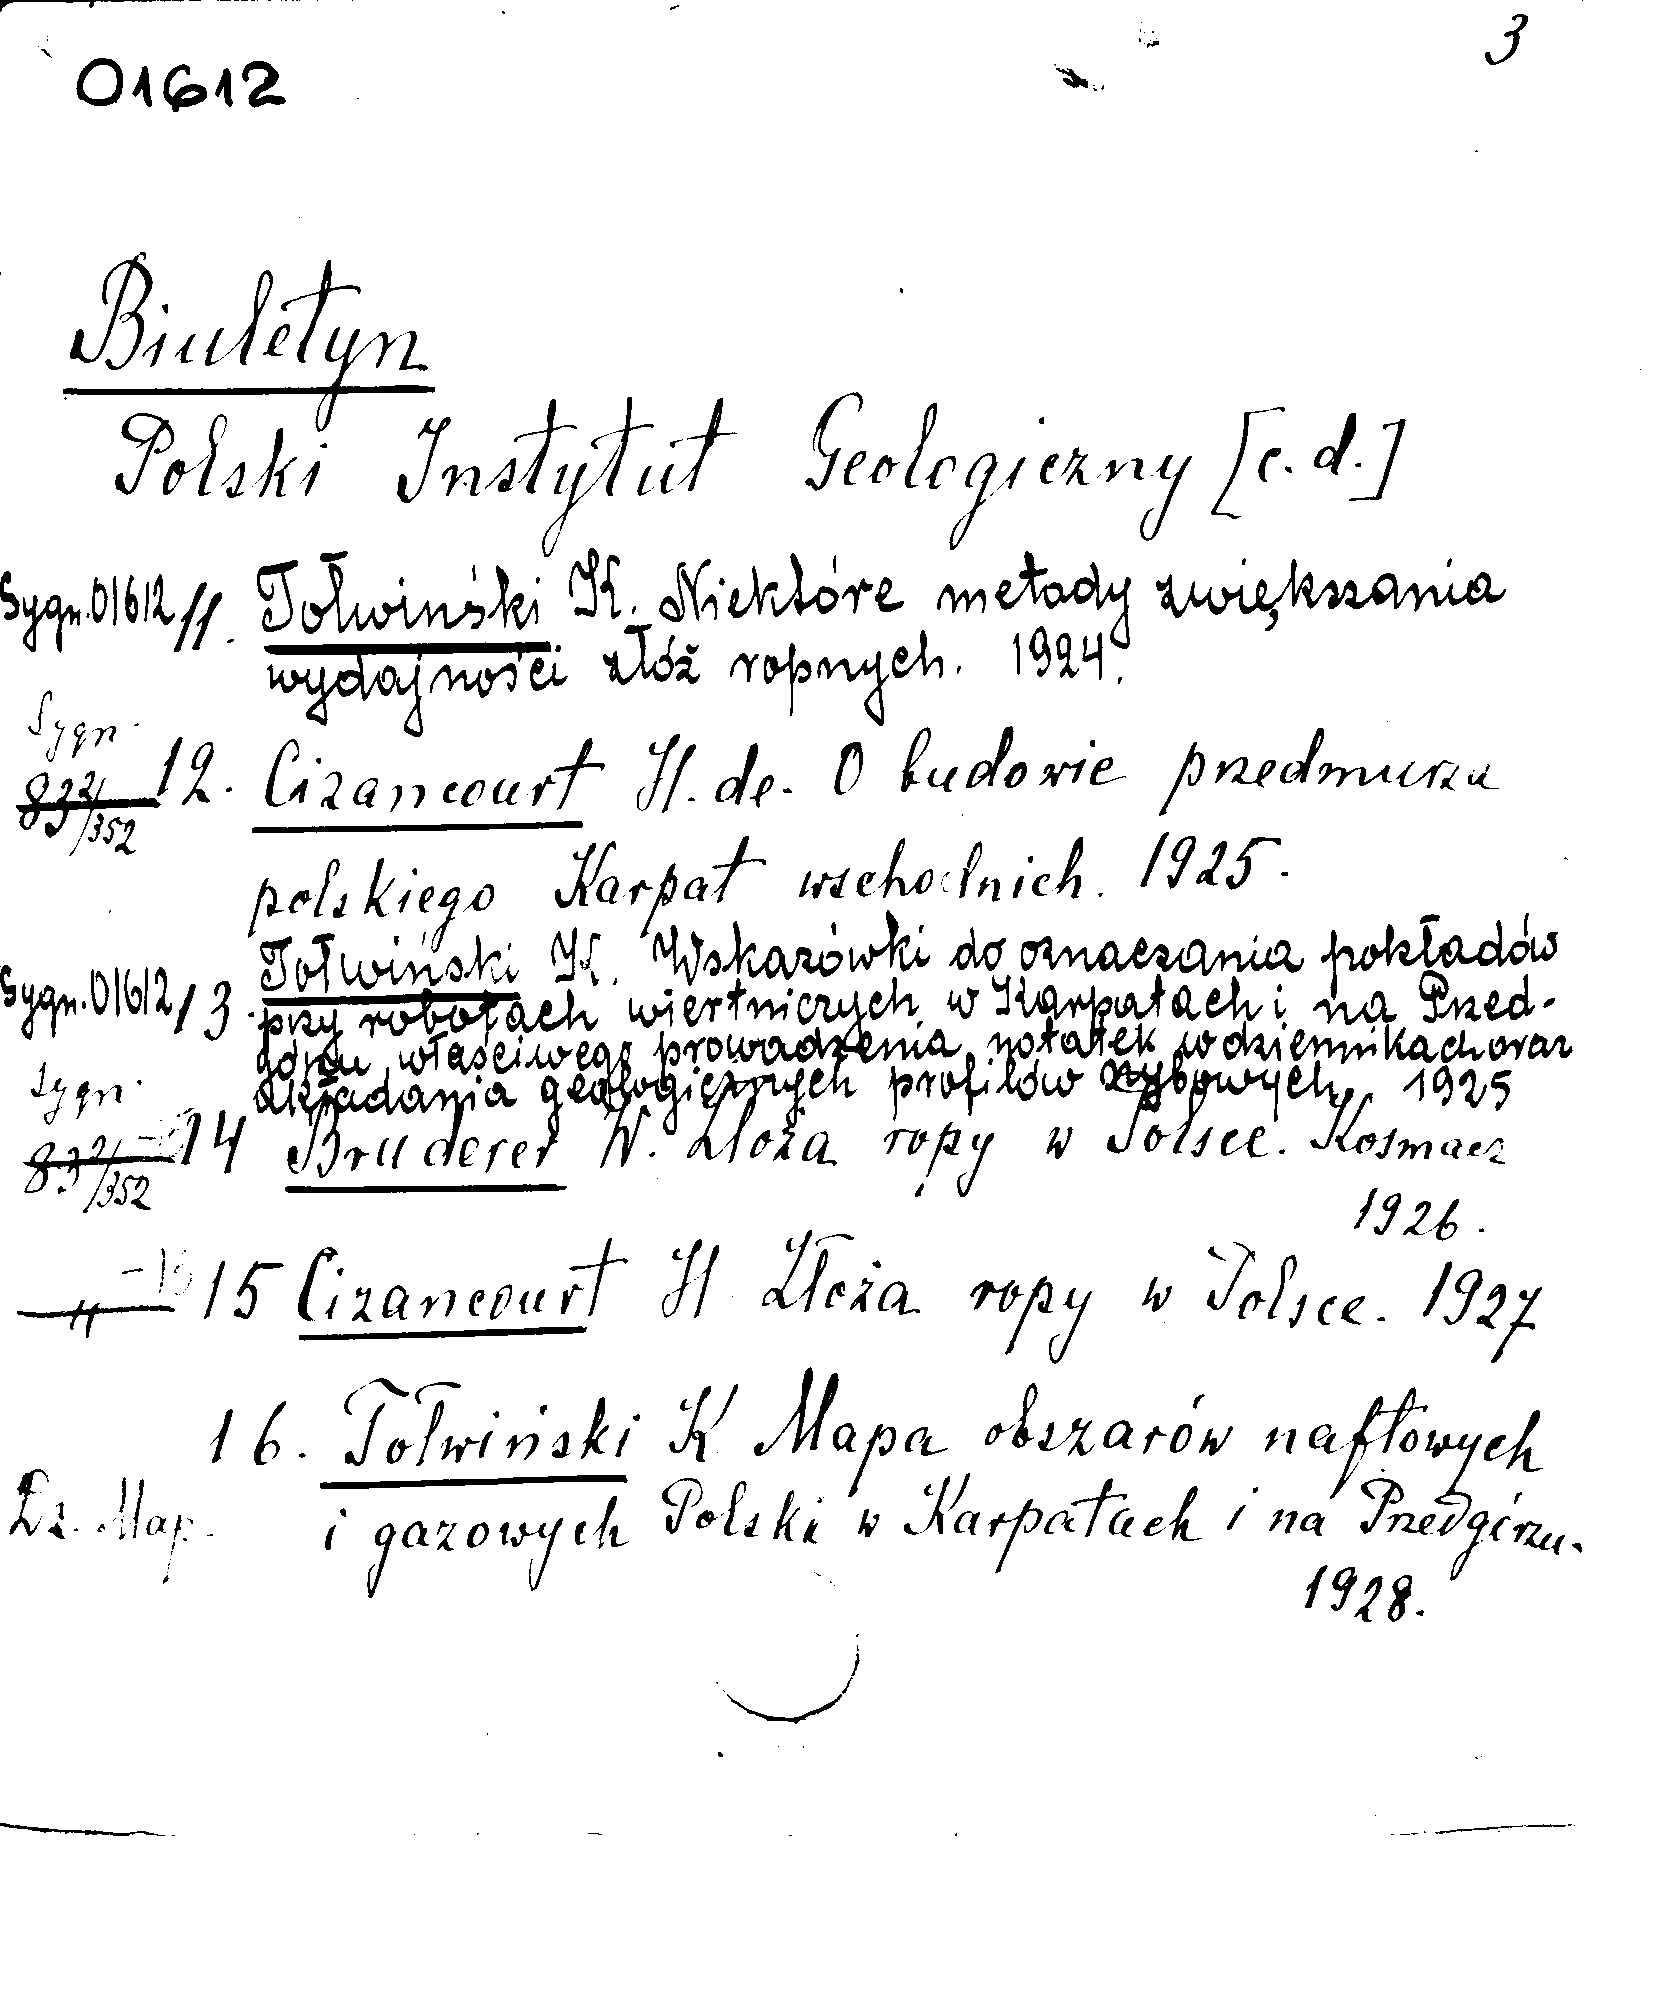 3
01612
Biuletyn
Polski Instytut Geologiczny [c.d.]
Sygn. 01612 11. Tołwiński K. Niektóre metody zwiększania
wydajności złóż ropnych. 1924.
Sygn.
12. Cizancourt H. de. O budowie przedmurza
832/352
polskiego Karpat wschodnich. 1925.
Tołwiński K. Wskazówki do oznaczania pokładów
Sygn. 01612 13. przy robotach wiertniczych w Karpatach i na Przed-
górzu właściwego prowadzenia notatek w dziennikach oraz
Sygn.
składania geologicznych profilów szybowych. 1925
14 Bruderer W. Złoża ropy w Polsce. Kosmacz
832/352
1926.
—"— 15 Cizancourt H Złoża ropy w Polsce. 1927
16. Tołwiński K Mapa obszarów naftowych
Dz. Map. i gazowych Polski w Karpatach i na Przedgórzu.
1928.